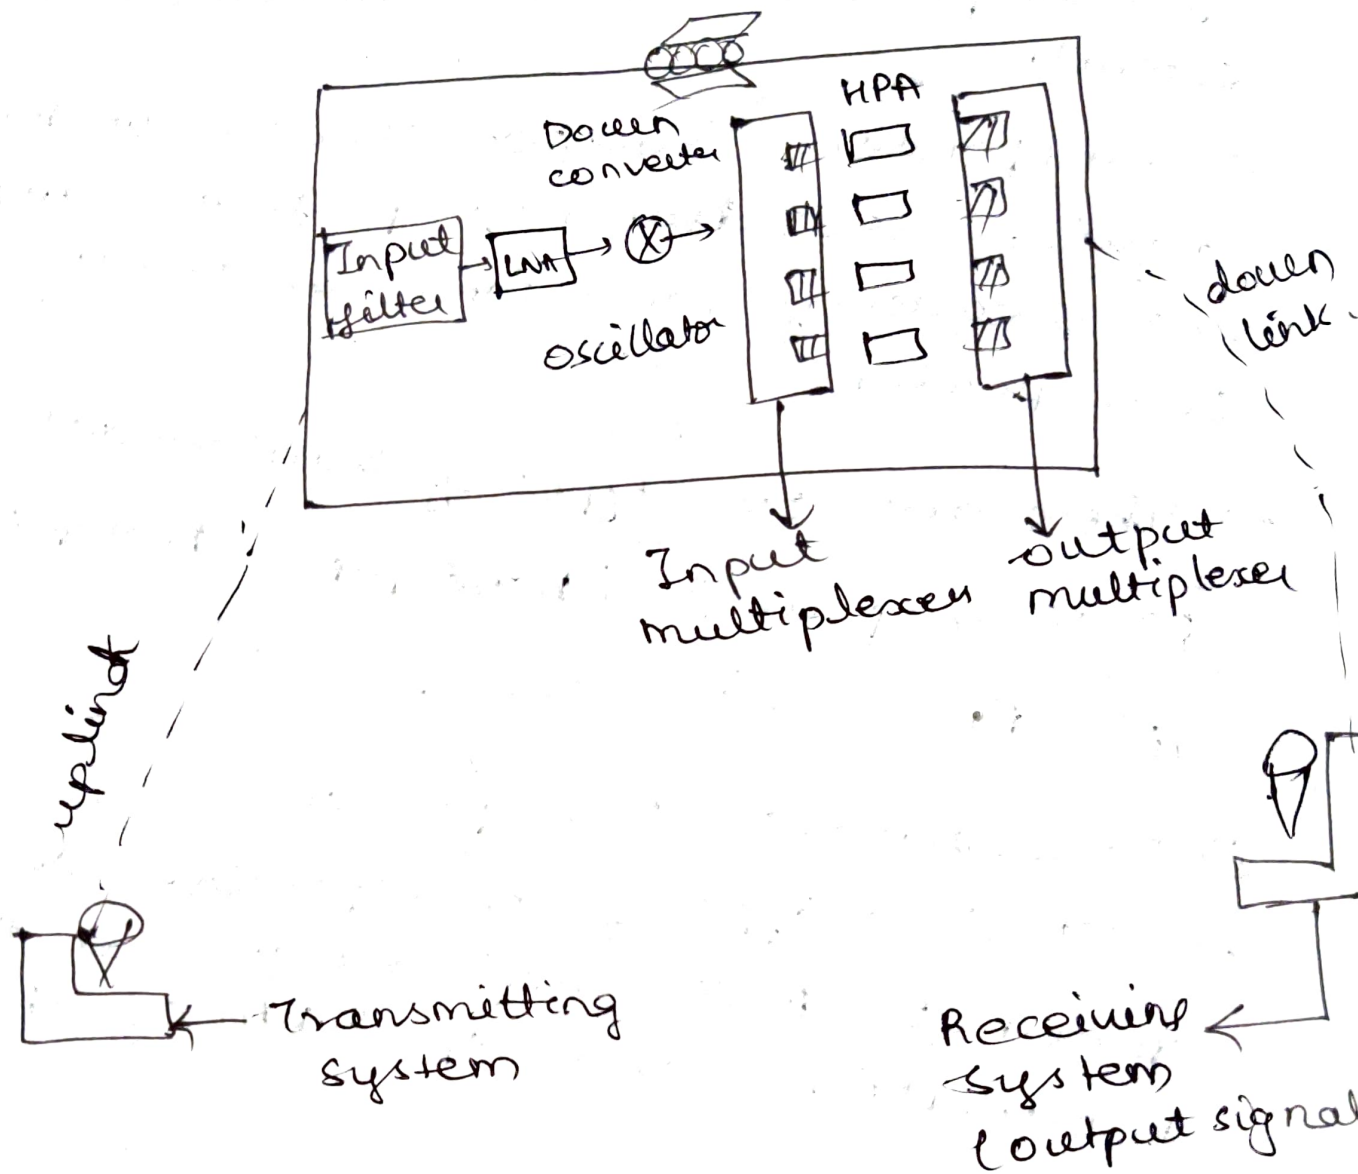 HPA
Down
converter
Input
filter
LNA
X
oscillator
down
link.
Input
multiplexer
output
multiplexer
uplink
Transmitting
system
Receiving
system
(output signal